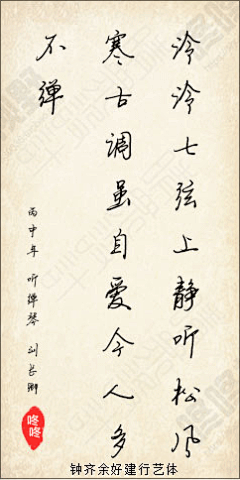 泠泠七弦上静听松风
寒古调虽自爱今人多
不弹
丙申年 听弹琴 刘长卿
咚咚
钟齐余好建行艺体